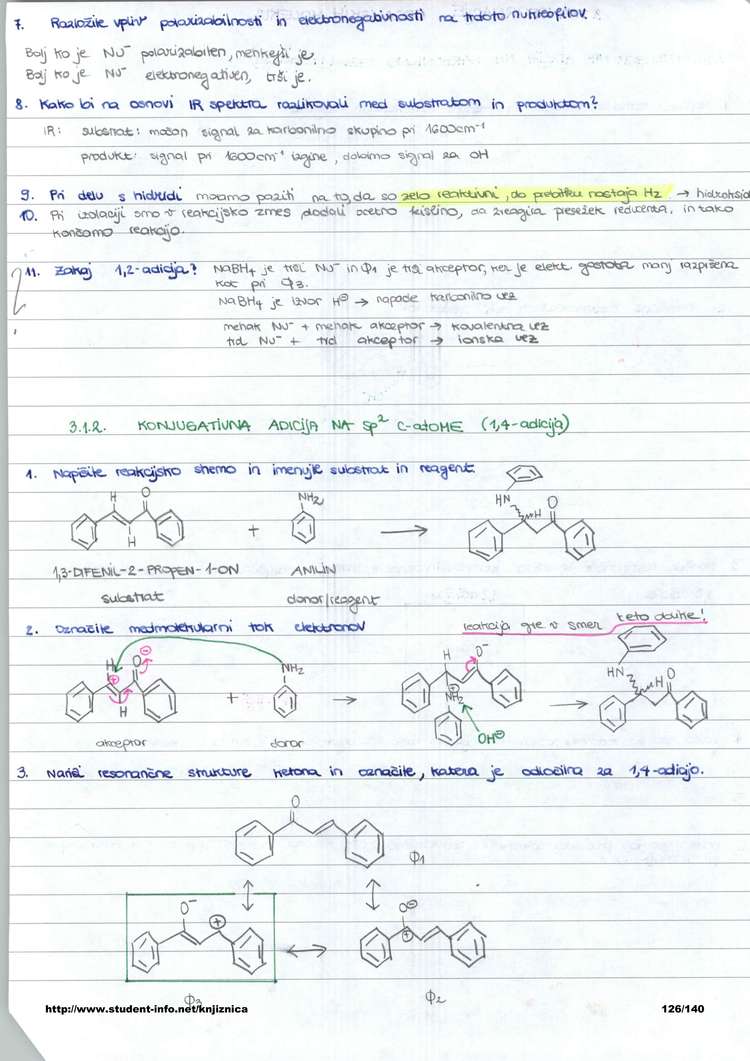 7. Razložite vpliv polarizabilnosti in elektronegativnosti na trdoto nukleofilov.
Bolj ko je Nu⁻ polarizabilen, mehkejši je.
Bolj ko je Nu⁻ elektronegativen, trši je.
8. Kako bi na osnovi IR spektra razlikovali med substratom in produktom?
IR: substrat: močan signal za karbonilno skupino pri 1600cm⁻¹
produkt: signal pri 1600cm⁻¹ izgine, dobimo signal za OH
9. Pri delu s hidridi moramo paziti na to, da so zelo reaktivni, ob prebitku nastaja H₂ → hidroksid
10. Pri izolaciji smo v reakcijsko zmes dodali ocetno kislino, da zreagira presežek reducenta, in tako
končamo reakcijo.
11. Zakaj 1,2-adicija? NaBH₄ je trši Nu⁻ in φ₁ je trši akceptor, ker je elekt. gostota manj razpršena
kot pri φ₃.
NaBH₄ je izvor H⊖ → napade karbonilno vez
mehak Nu⁻ + mehak akceptor → kovalentna vez
trd Nu⁻ + trd akceptor → ionska vez
3.1.2. KONJUGATIVNA ADICIJA NA sp² C-atome (1,4-adicija)
1. Napišite reakcijsko shemo in imenujte substrat in reagent.
H O NH₂ HN H O
H + →
1,3-DIFENIL-2-PROPEN-1-ON ANILIN
substrat donor/reagent
2. Označite medmolekularni tok elektronov reakcija gre v smer keto oblike!
H O⊖ NH₂ H O⁻ HN H O
⊕ H + → ⊕ NH₂ →
OH⊖
akceptor donor
3. Nariši resonančne strukture ketona in označite, katera je odločilna za 1,4-adicijo.
O
φ₁
O⁻ ⊕ O⊖ ⊕
φ₃ φ₂
http://www.student-info.net/knjiznica 126/140